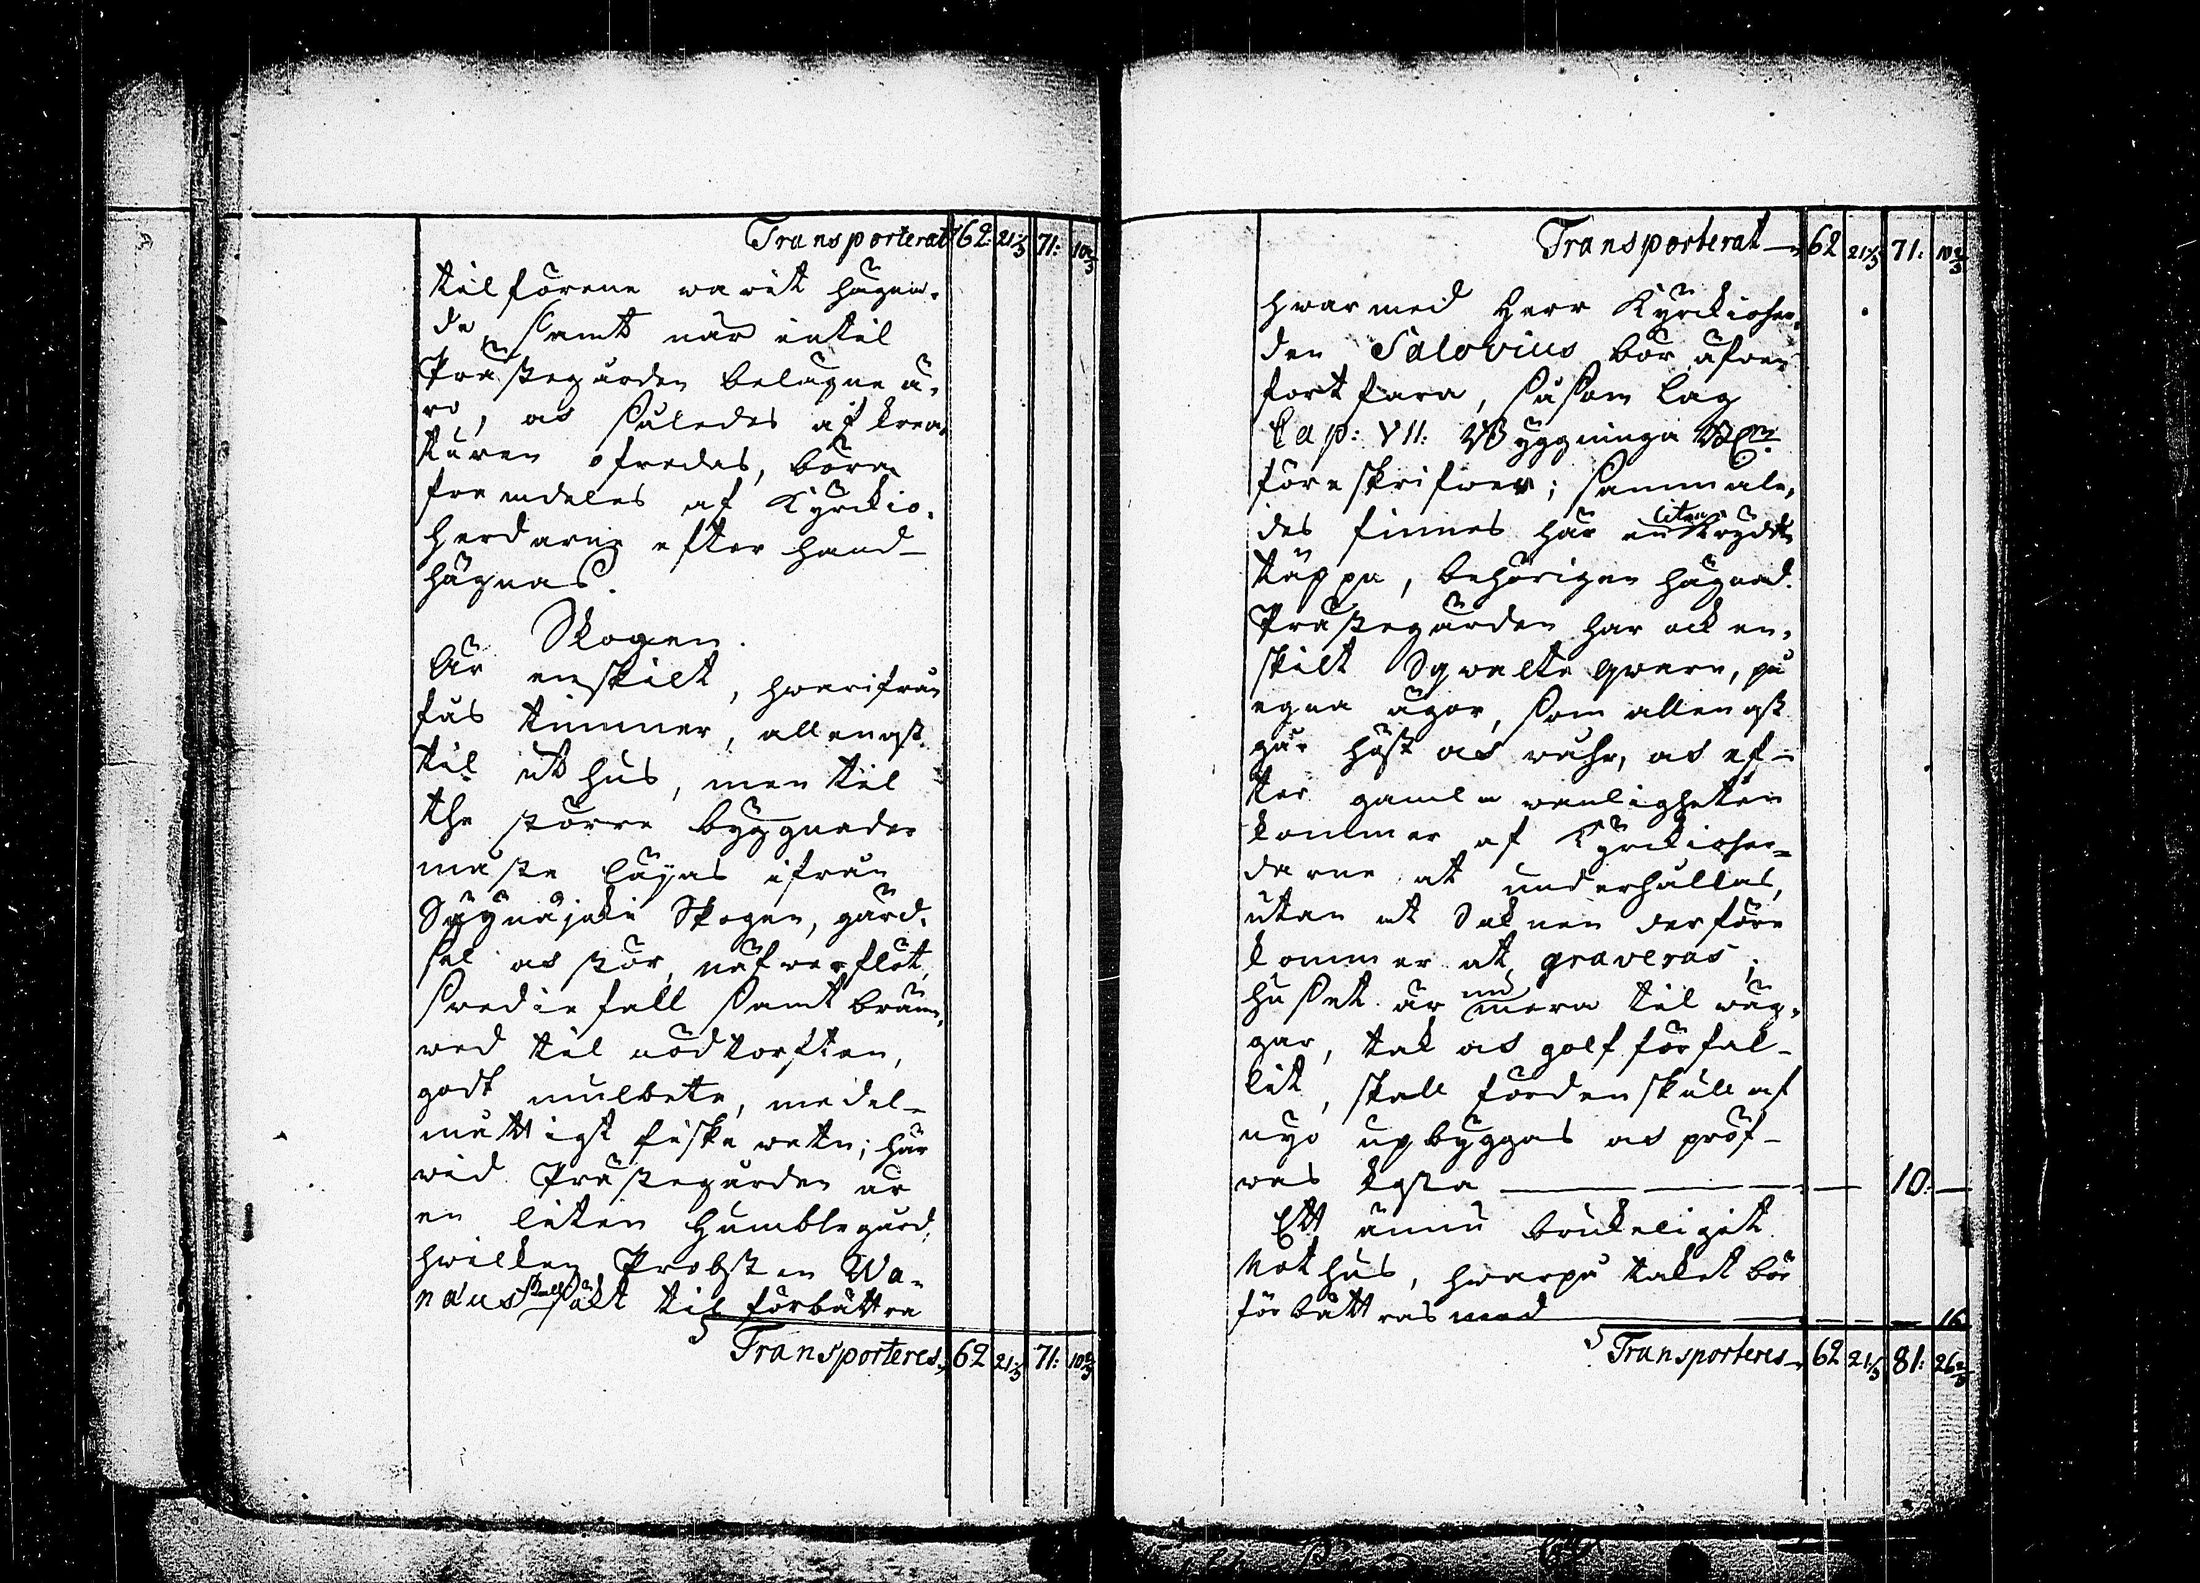 Transporterat 62: 21⅓ 71: 10⅔
tilförene warit hägna-
de, samt när intil
Prästegården belägne ä-
ro, as således af krea-
turen ofredas, böra
framdeles af Kyrckio-
herdarne efter hand
hägnas.
Skogen.
Är enskilt, hwarifrån
fås timmer, allenast
til uthus, men til
the större byggnader
måste tagas ifrån
Säynäjoki Skogen, gärd-
sel as stör, näfwerflåt,
swediefall samt bränn-
wed til nödtorften,
godt mulbete, medel-
måttigt fiske watn; här
wid Prästegården är
en liten Humblegård,
hwilken Probsten Wa-
naus skall sökt til förbättra
Transporteres 62 21⅓ 71: 10⅔
Transporterat 62 21⅓ 71: 10⅔
hwarmed Herr Kyrckioher-
den Salovius bör äfwen
fortfara, såsom Lag
Cap: VII: Byggninga B:
föreskrifwer; sammale-
des finnes här en liten Krydd
täppa, behörigen hägnad.
Prästegården har ock en-
skilt Sqwalte qwarn, på
egna ägor, som allenast
går höst as wåhr, as ef-
ter gamla wanligheten
kommer af Kyrckioher-
darne at underhållas,
utan at Soknen derföre
kommer at graveras;
huset är nu mera til wäg-
gar, tak as golf förfal-
lit, skall fördenskull af
nyo upbyggas as pröf-
was kosta 10:
Ett ännu brukeligit
Nothus, hwarpå taket bör
förbättras med 16
Transporteres 62 21⅓ 81: 26⅔